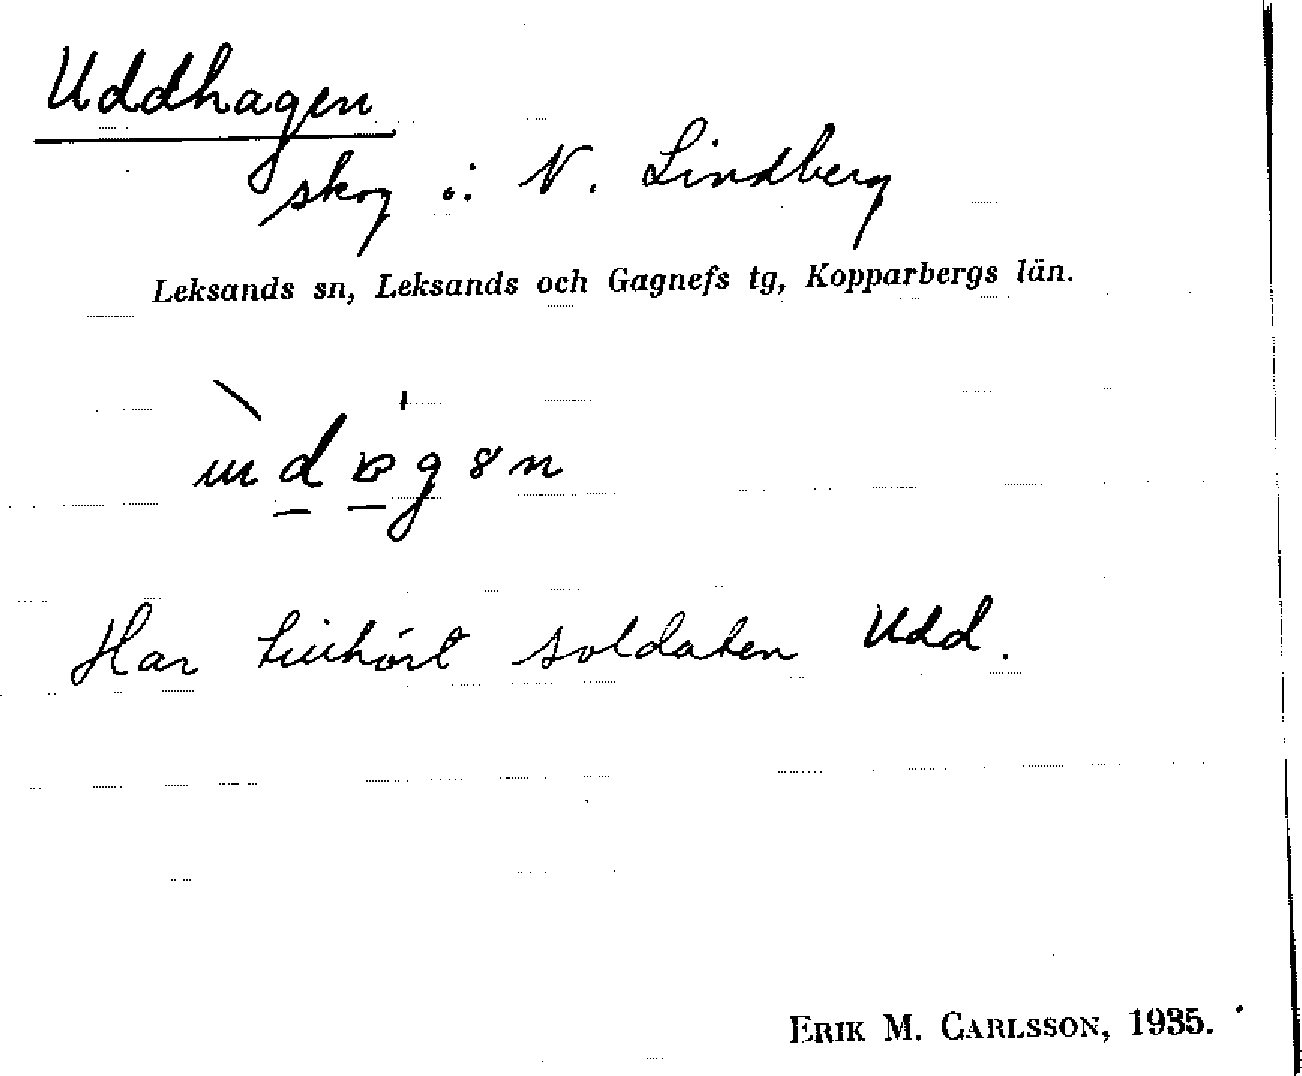 Uddhagen
skog ö. N. Lindberg
Leksands sn, Leksands och Gagnefs tg, Kopparbergs län.
Har tillhört soldaten Udd.
ERIK M. CARLSSON, 1935.